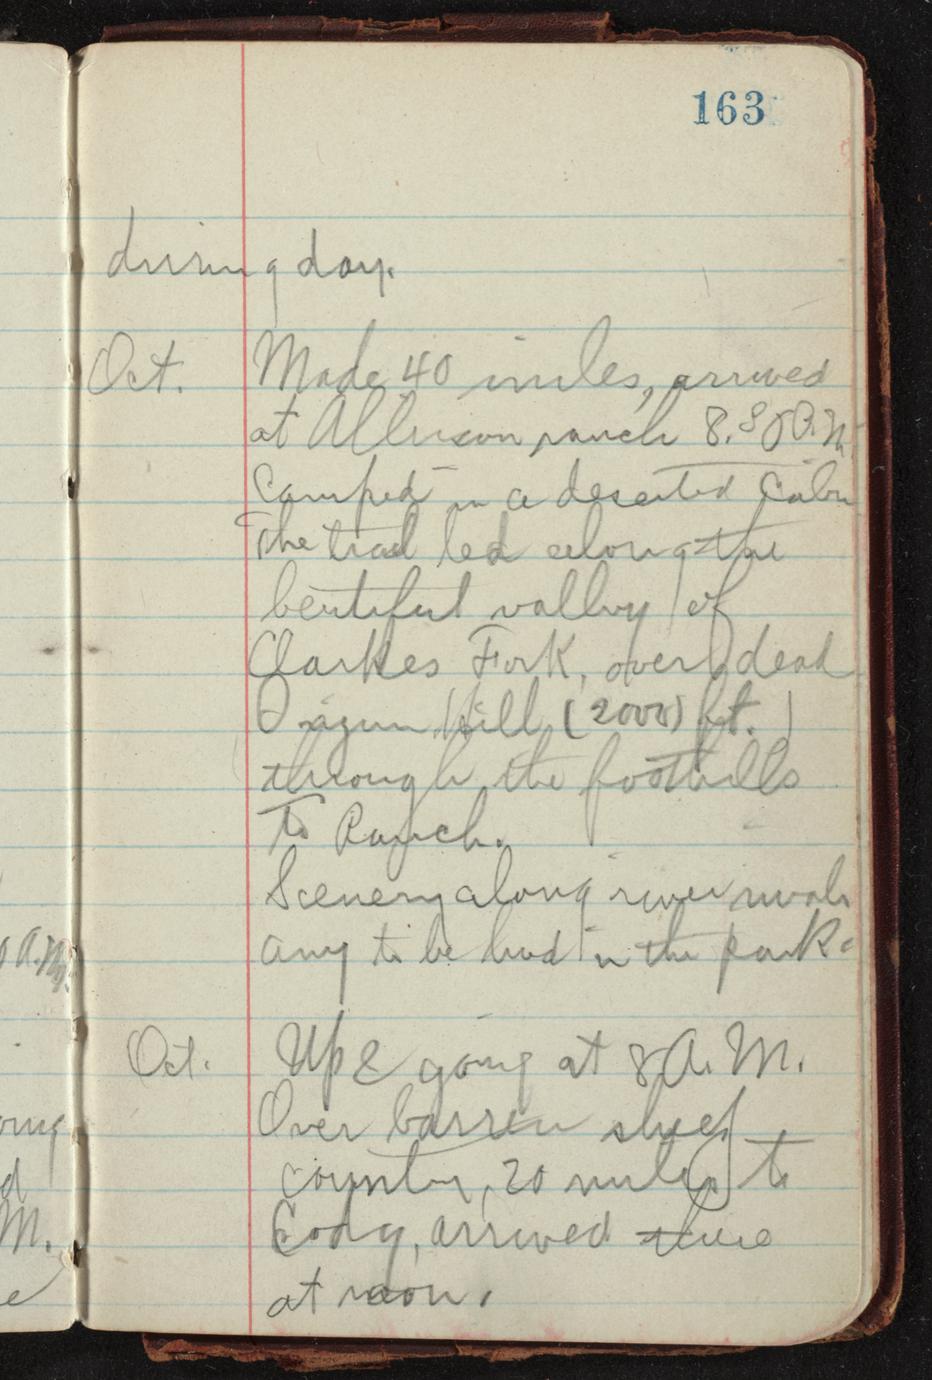 163
during day.
Oct. Made 40 miles, arrived
at Allison ranch 8.30 P.M.
Camped in a deserted Cabin
The trail led along the
beutiful valley of
Clarkes Fork, over dead
Hill (2000) ft.
through the foothills
To Ranch.
Scenery along river rivals
any to be had in the park.
Oct. Up & going at 8 A. M.
Over barren sheep
country, 20 miles to
Cody, arrived there
at noon.